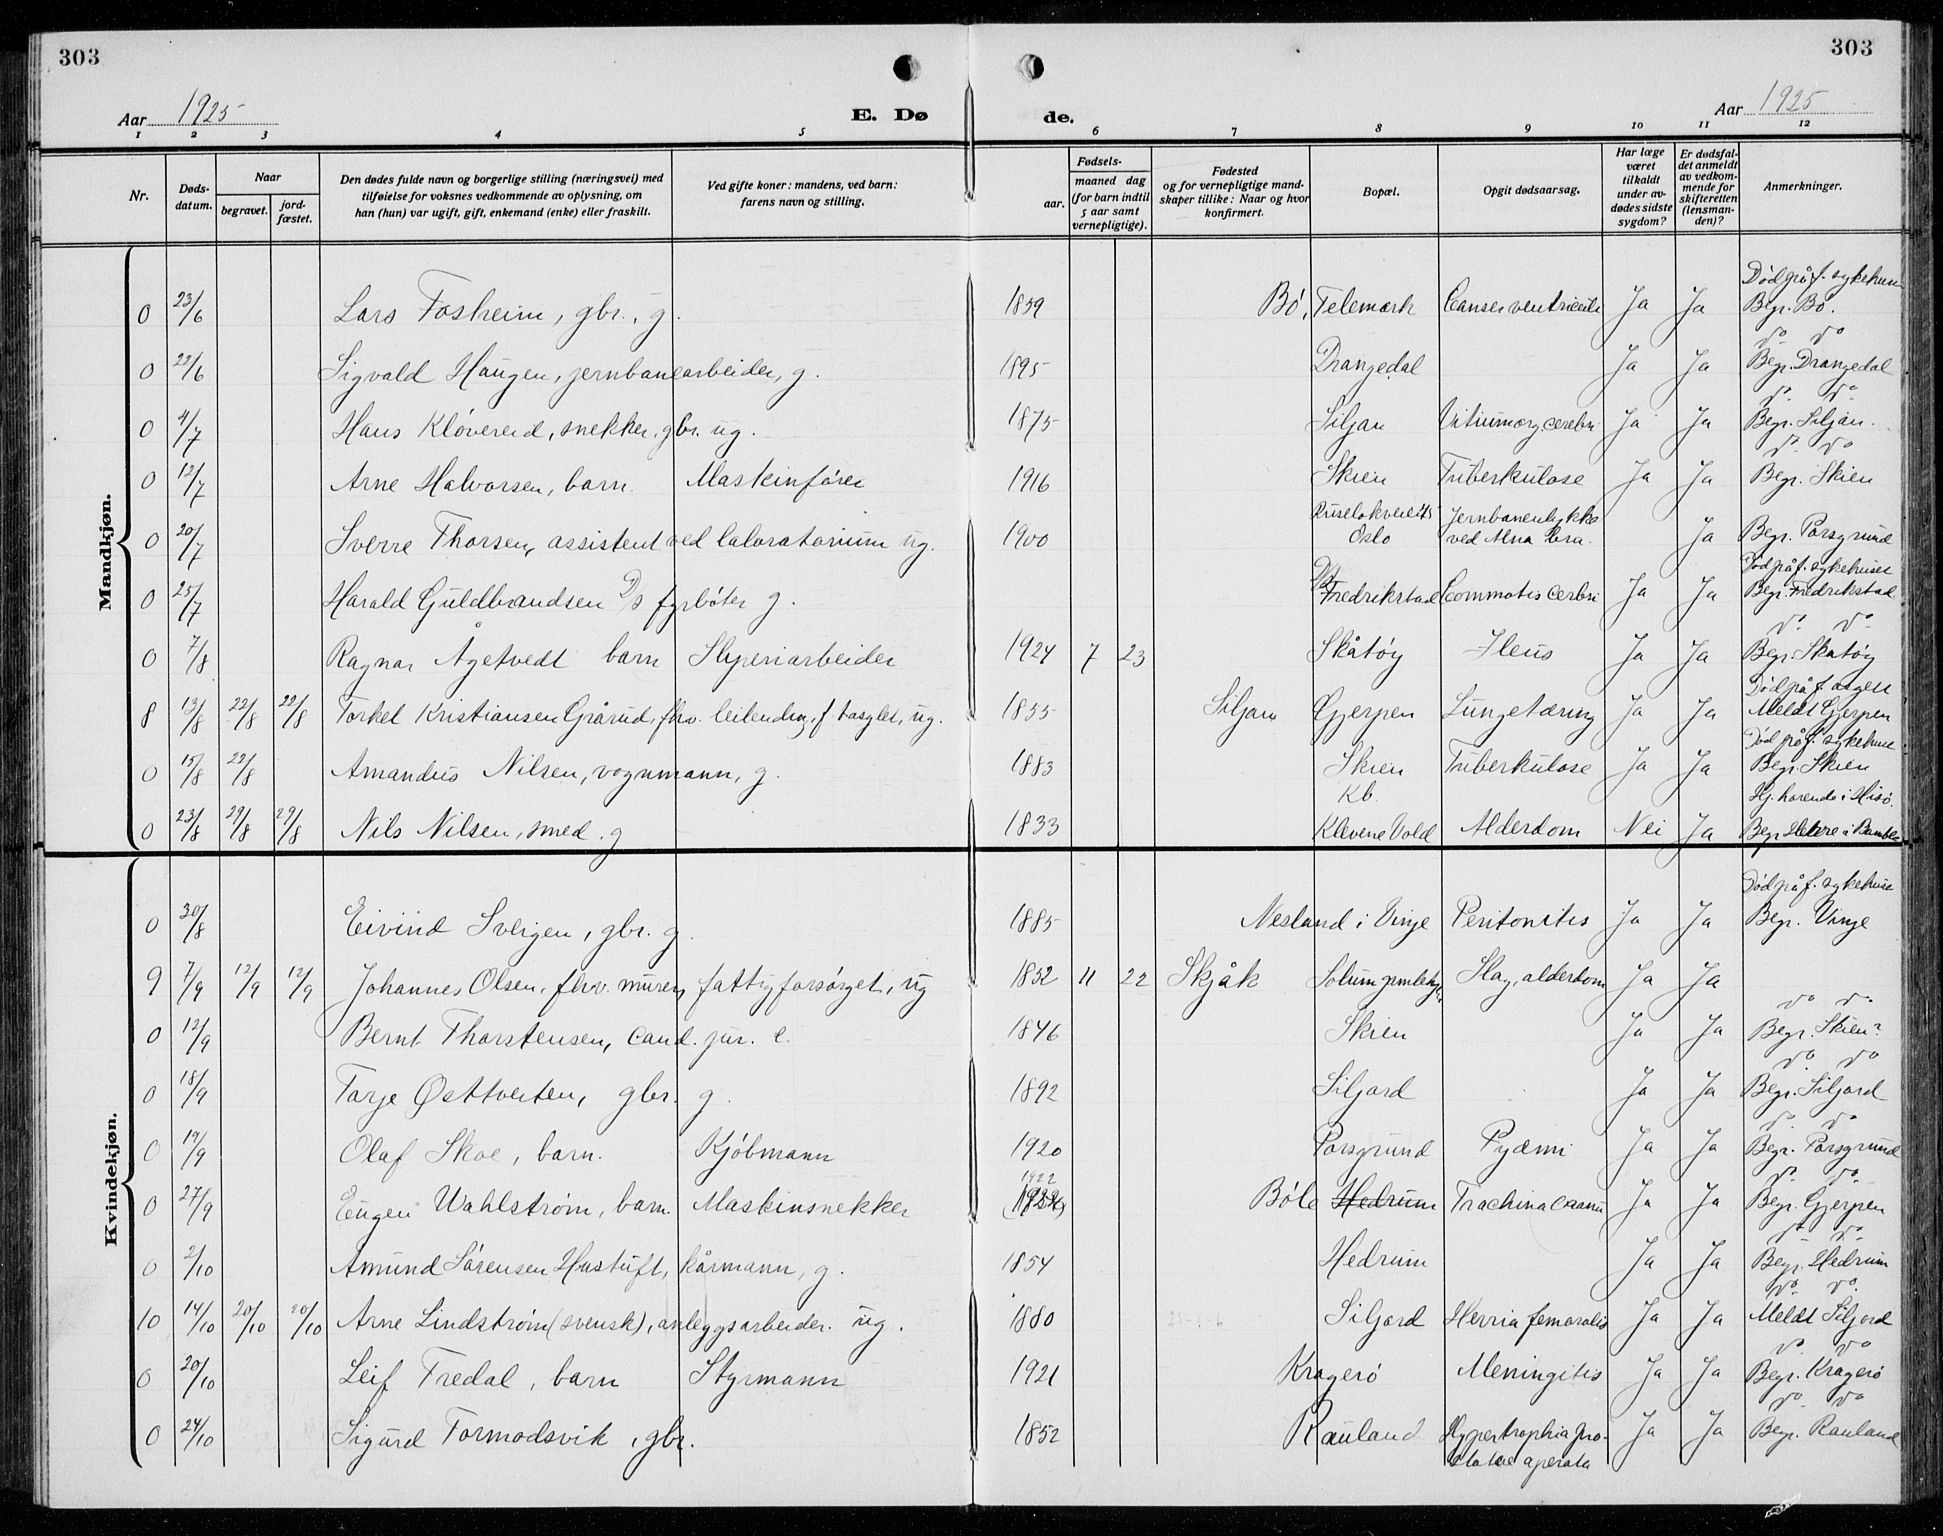 303
303
Aar 1925
E. Dø
de.
Aar 1925
1 2 3 4 5 6 7 8 9 10 11 12
Nr.
Døds-
datum.
Naar
begravet.
jord-
fæstet.
Den dødes fulde navn og borgerlige stilling (næringsvei) med
tilføielse for voksnes vedkommende av oplysning, om
han (hun) var ugift, gift, enkemand (enke) eller fraskilt.
Ved gifte koner: mandens, ved barn:
farens navn og stilling.
Fødsels-
aar.
maaned dag
(for barn indtil
5 aar samt
vernepligtige).
Fødested
og for vernepligtige mand-
skaper tillike: Naar og hvor
konfirmert.
Bopæl.
Opgit dødsaarsag.
Har læge
været
tilkaldt
under av-
dødes sidste
sygdom?
Er dødsfal-
det anmeldt
av vedkom-
mende for
skifteretten
(lensman-
den)?
Anmerkninger.
Mandkjøn.
Død på f. sykehus
0 23/6 Lars Fosheim, gbr., g. 1859 Bö, Telemark Canser ventriculi Ja Ja Begr. Bö.
do do
0 22/6 Sigvald Haugen, jernbanearbeider, g. 1895 Drangedal Ja Ja Begr. Drangedal
do do
0 4/7 Hans Klövereid, snekker, gbr. ug. 1875 Siljan Vitium org. cerebri Ja Ja Begr. Siljan.
do do
0 12/7 Arne Halvorsen, barn. Maskinförer 1916 Skien Tuberkulose Ja Ja Begr. Skien
Jernbaneulykke
0 20/7 Sverre Thorsen, assistent ved laboratorium ug. 1900 Oslo ved Alna bru. Ja Begr. Porsgrund
Död på f. sykehuset
0 25/7 Harald Guldbrandsen D/S fyrböter g. Fredrikstad Commotis cerbri Ja Ja Begr. Fredrikstad
do do
0 7/8 Ragnar Ågetvedt barn Sliperiarbeider 1924 7 23 Skåtöy Ileus Ja Ja Begr. Skåtöy
8 13/8 22/8 22/8 Torkel Kristiansen Grårud, fhv. leilending, f. ug. 1855 Siljan Gjerpen Lungetæring Ja Ja Meldt Gjerpen
Död på f. sykehuse
0 15/8 22/8 Amandus Nilsen, vognmann, g. 1883 Skien Tuberkulose Ja Ja Begr. Skien
Kb. Hj. hørende i Hisö.
0 23/8 29/8 29/8 Nils Nilsen, smed. g 1833 Klevene Vold Alderdom Nei Ja Begr i Bamble
Kvindekjøn.
Död på f. sykehuse
0 30/8 Eivind Sveigen, gbr. g 1885 Nesland i Vinje Peritonitis Ja Ja Begr. Vinje
9 7/9 12/9 12/9 Johannes Olsen, fhv. murer, fattigforsörget, ug 1852 11 22 Skjåk Solum gamlehj. Slag, alderdom Ja Ja
do do
0 12/9 Bernt Thorstensen, cand. jur. e. 1846 Skien Ja Ja Begr. Skien?
do do
0 18/9 Tarje Østtveiten, gbr. g 1892 Siljord Ja Ja Begr. Siljord
do do
0 19/9 Olaf Skoe, barn. Kjöbmann 1920 Porsgrund Pyæmi Ja Ja Begr. Porsgrund
1922 do do
0 27/9 Eugen Wahlström, barn. Maskinsnekker Böle Hedrum Ja Ja Begr. Gjerpen
do do
0 2/10 Amund Sörensen Hustuft, kårmann, g. 1854 Hedrum Ja Ja Begr. Hedrum
do do
10 14/10 20/10 20/10 Arne Lindström (svensk), anleggsarbeider. ug. 1880 Siljord Hernia femoralis Ja Ja Meldt Siljord
do do
0 20/10 Leif Fredal, barn Styrmann 1921 Kragerö Meningitis Ja Ja Begr. Kragerö
do do
0 24/10 Sigurd Tormodsvik, gbr. 1852 Rauland Hypertrophia pro- Ja Ja Begr. Rauland
statae operata